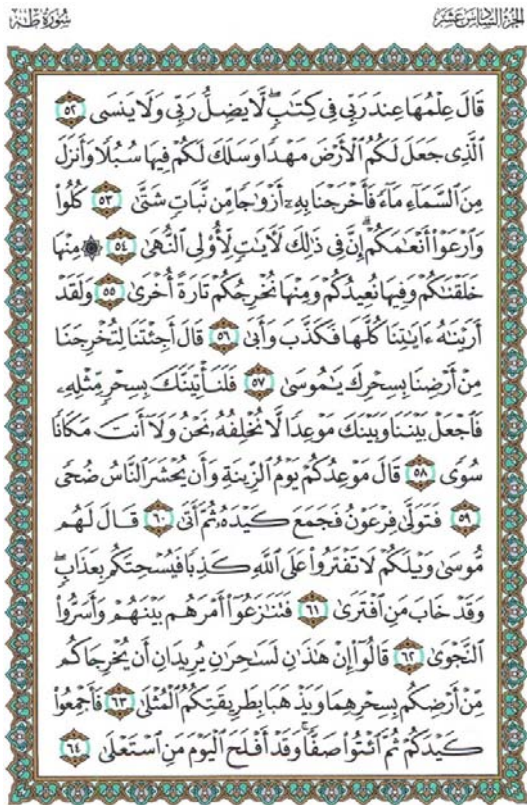 الجُزْءُ السَّادِسَ عَشَرَ
سُورَةُ طه
قَالَ عِلۡمُهَا عِندَ رَبِّي فِي كِتَٰبٖۖ لَّا يَضِلُّ رَبِّي وَلَا يَنسَى ٥٢
ٱلَّذِي جَعَلَ لَكُمُ ٱلۡأَرۡضَ مَهۡدٗا وَسَلَكَ لَكُمۡ فِيهَا سُبُلٗا وَأَنزَلَ
مِنَ ٱلسَّمَآءِ مَآءٗ فَأَخۡرَجۡنَا بِهِۦٓ أَزۡوَٰجٗا مِّن نَّبَاتٖ شَتَّىٰ ٥٣ كُلُواْ
وَٱرۡعَوۡاْ أَنۡعَٰمَكُمۡۚ إِنَّ فِي ذَٰلِكَ لَأٓيَٰتٖ لِّأُوْلِي ٱلنُّهَىٰ ٥٤ ۞ مِنۡهَا
خَلَقۡنَٰكُمۡ وَفِيهَا نُعِيدُكُمۡ وَمِنۡهَا نُخۡرِجُكُمۡ تَارَةً أُخۡرَىٰ ٥٥ وَلَقَدۡ
أَرَيۡنَٰهُ ءَايَٰتِنَا كُلَّهَا فَكَذَّبَ وَأَبَىٰ ٥٦ قَالَ أَجِئۡتَنَا لِتُخۡرِجَنَا
مِنۡ أَرۡضِنَا بِسِحۡرِكَ يَٰمُوسَىٰ ٥٧ فَلَنَأۡتِيَنَّكَ بِسِحۡرٖ مِّثۡلِهِۦ
فَٱجۡعَلۡ بَيۡنَنَا وَبَيۡنَكَ مَوۡعِدٗا لَّا نُخۡلِفُهُۥ نَحۡنُ وَلَآ أَنتَ مَكَانٗا
سُوٗى ٥٨ قَالَ مَوۡعِدُكُمۡ يَوۡمُ ٱلزِّينَةِ وَأَن يُحۡشَرَ ٱلنَّاسُ ضُحٗى
٥٩ فَتَوَلَّىٰ فِرۡعَوۡنُ فَجَمَعَ كَيۡدَهُۥ ثُمَّ أَتَىٰ ٦٠ قَالَ لَهُم
مُّوسَىٰ وَيۡلَكُمۡ لَا تَفۡتَرُواْ عَلَى ٱللَّهِ كَذِبٗا فَيُسۡحِتَكُم بِعَذَابٖۖ
وَقَدۡ خَابَ مَنِ ٱفۡتَرَىٰ ٦١ فَتَنَٰزَعُوٓاْ أَمۡرَهُم بَيۡنَهُمۡ وَأَسَرُّواْ
ٱلنَّجۡوَىٰ ٦٢ قَالُوٓاْ إِنۡ هَٰذَٰنِ لَسَٰحِرَٰنِ يُرِيدَانِ أَن يُخۡرِجَاكُم
مِّنۡ أَرۡضِكُم بِسِحۡرِهِمَا وَيَذۡهَبَا بِطَرِيقَتِكُمُ ٱلۡمُثۡلَىٰ ٦٣ فَأَجۡمِعُواْ
كَيۡدَكُمۡ ثُمَّ ٱئۡتُواْ صَفّٗاۚ وَقَدۡ أَفۡلَحَ ٱلۡيَوۡمَ مَنِ ٱسۡتَعۡلَىٰ ٦٤